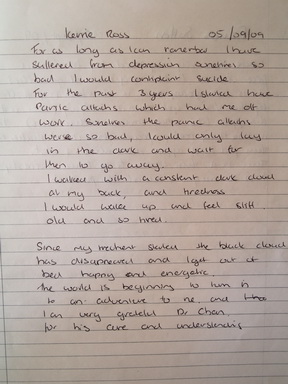 Kerrie Ross 05/09/09
For as long as I can remember I have
suffered from depression sometimes so
bad I would contemplate suicide
For the past 3 years I started have
Panic attacks which had me off
work. Sometimes the panic attacks
were so bad, I could only lay
in the dark and wait for
them to go away.
I walked with a constant dark cloud
at my back, and tiredness
I would wake up and feel stiff
old and so tired.
Since my treatment started the black cloud
has disappeared and I get out of
bed happy and energetic.
The world is beginning to turn in
to an adventure to me. and
I am very grateful Dr Chan
for his care and understanding